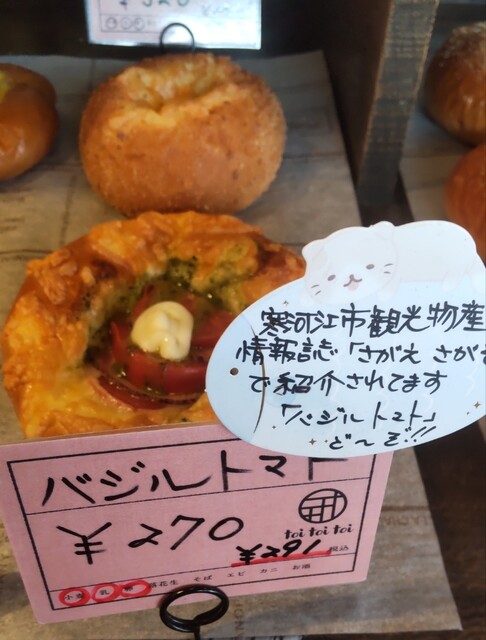 寒河江市観光物産
情報誌「さがえ さが
で紹介されてます
「バジルトマト」
ど〜ぞ!!
バジルトマト
¥270
toi toi toi
¥291 税込
小麦 乳 卵 落花生 そば エビ カニ お酒